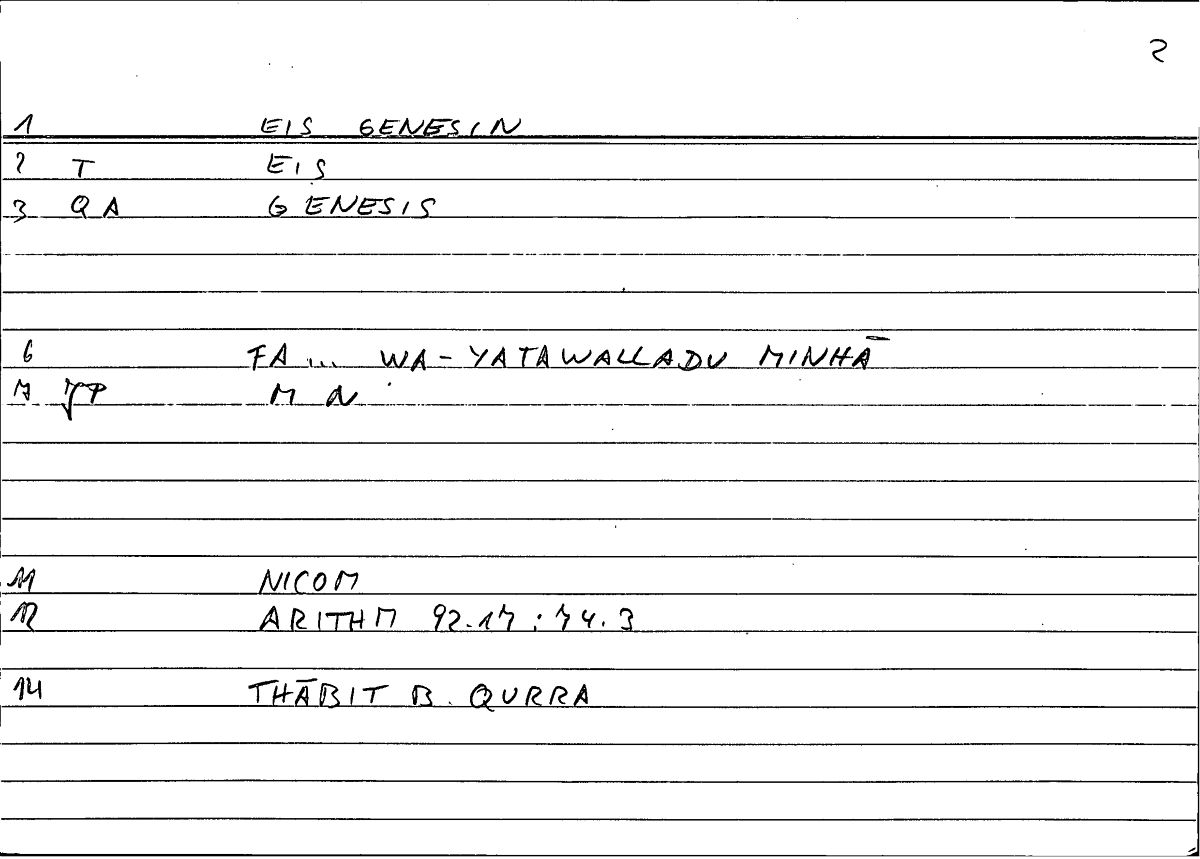 2
1 EIS GENESIN
2 T EIS
3 QA GENESIS
6 FA ... WA-YATAWALLADU MINHĀ
7 M N
11 NICOM
12 ARITHM 92.17 : 74.3
14 THĀBIT B. QURRA